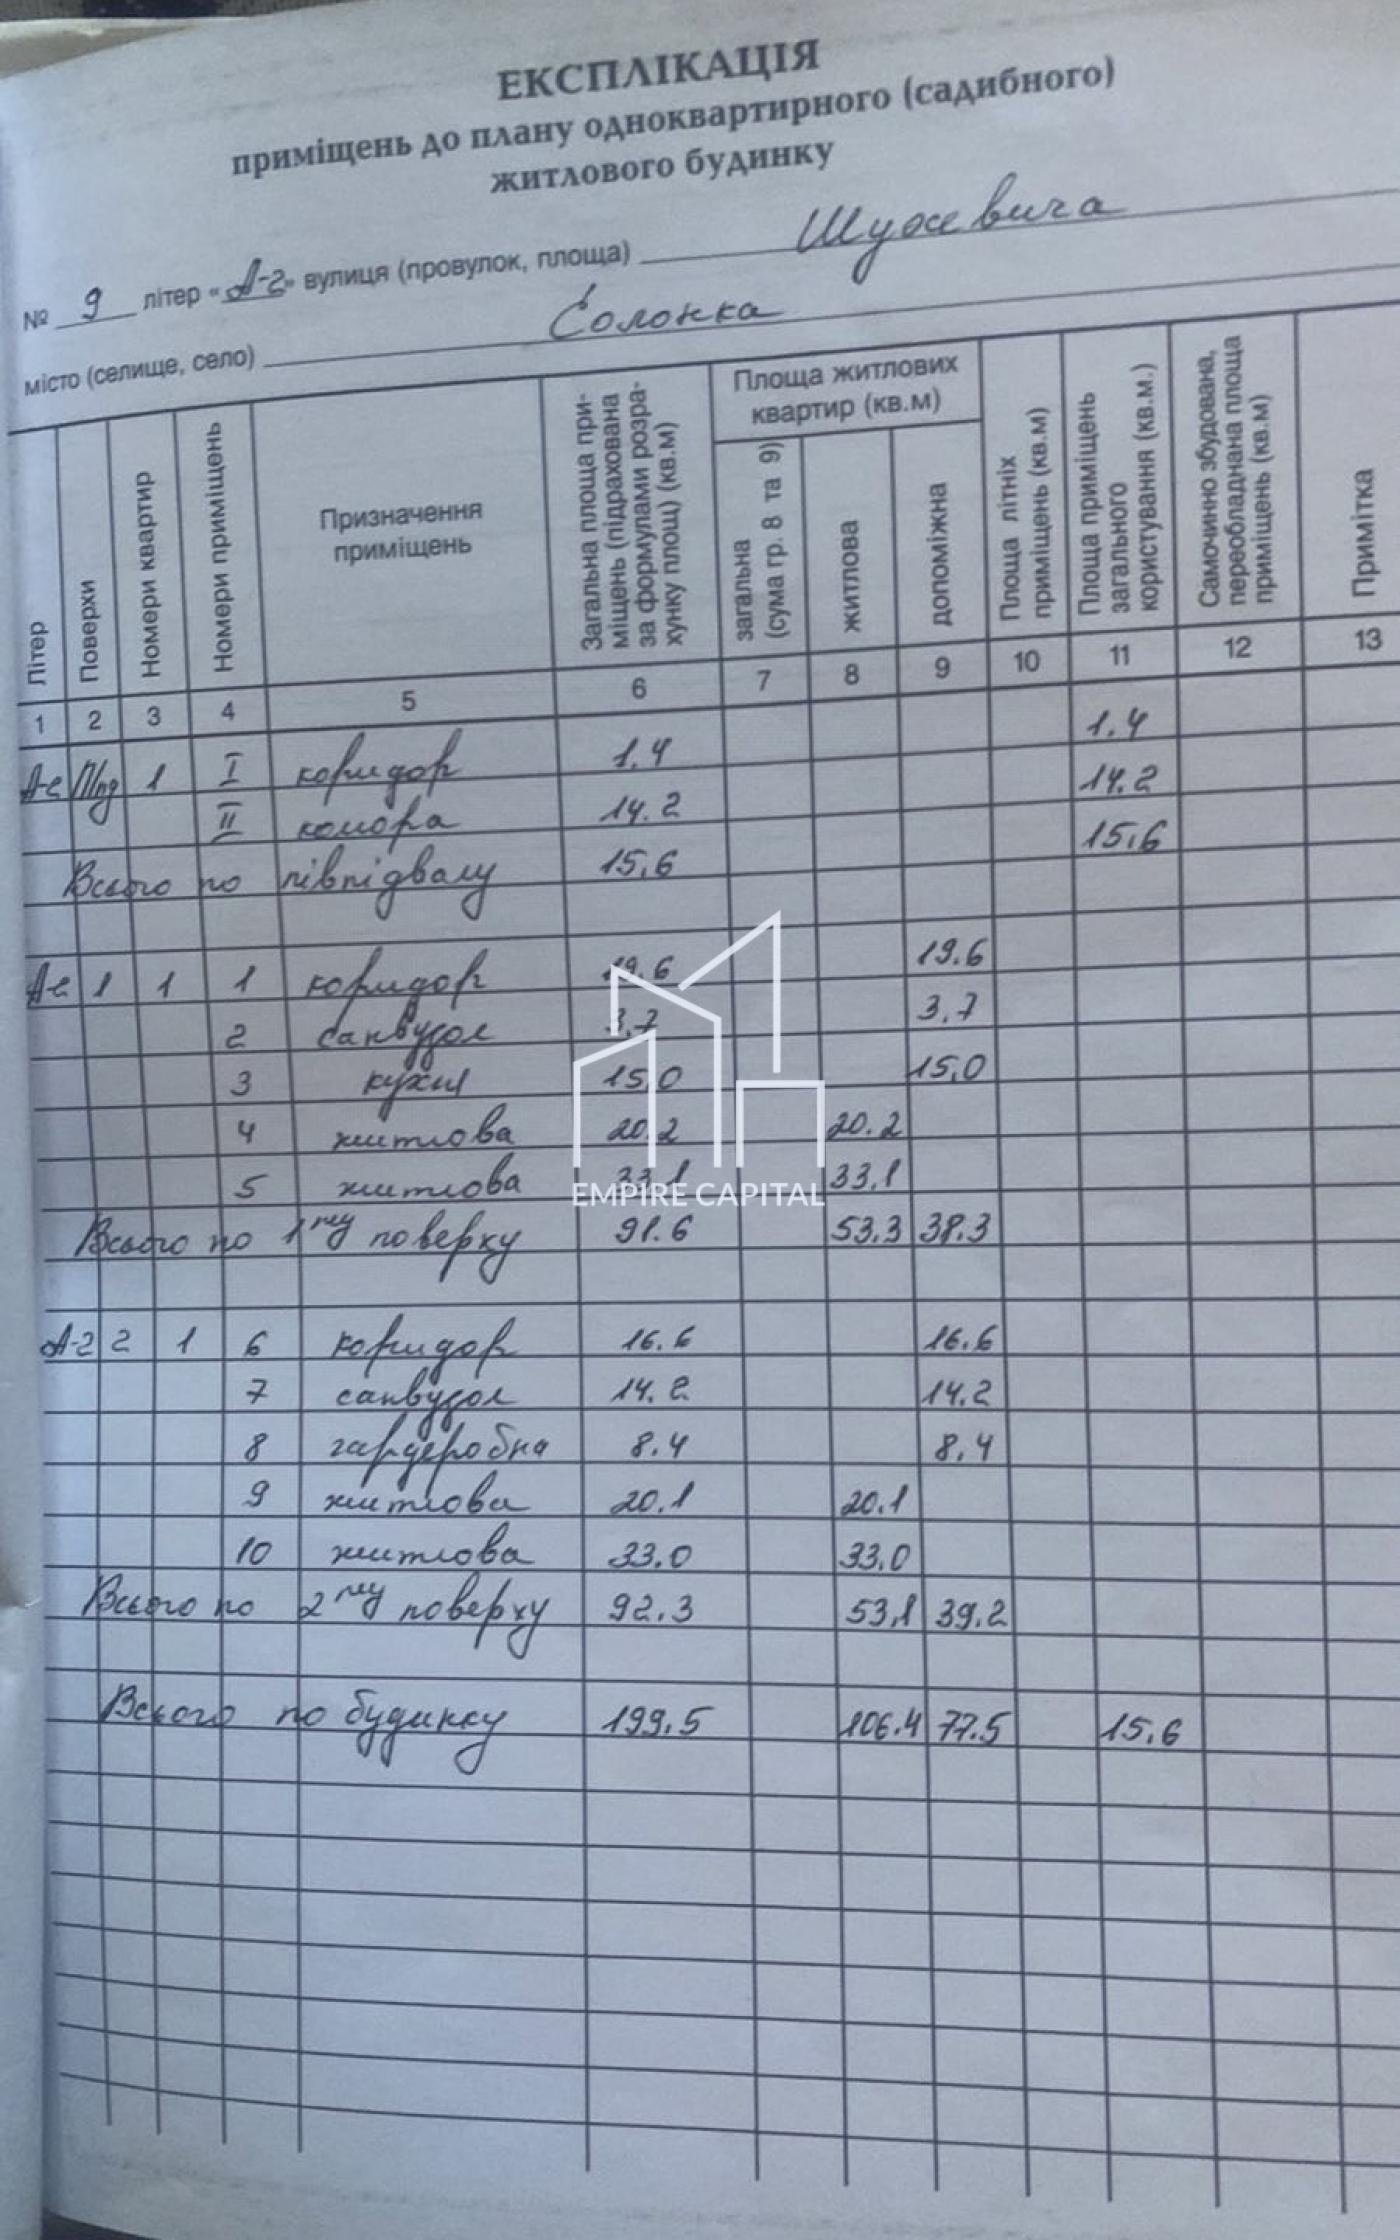 ЕКСПЛІКАЦІЯ
приміщень до плану одноквартирного (садибного)
житлового будинку
№ 9 літер «А-2» вулиця (провулок, площа) Шухевича
місто (селище, село) Солонка
Літер
Поверхи
Номери квартир
Номери приміщень
Призначення
приміщень
Загальна площа при-
міщень (підрахована
за формулами розра-
хунку площ) (кв.м)
Площа житлових
квартир (кв.м)
загальна
(сума гр. 8 та 9)
житлова
допоміжна
Площа літніх
приміщень (кв.м)
Площа приміщень
загального
користування (кв.м.)
Самочинно збудована,
переобладнана площа
приміщень (кв.м)
Примітка
1 2 3 4 5 6 7 8 9 10 11 12 13
А-2 П/пд 1 I коридор 1.4 1.4
II комора 14.2 14.2
Всього по півпідвалу 15,6 15,6
А-2 1 1 1 коридор 19.6 19.6
2 санвузол 3.7 3.7
3 кухня 15,0 15,0
4 житлова 20.2 20.2
5 житлова 33.1 33.1
EMPIRE CAPITAL
Всього по 1му поверху 91.6 53.3 38.3
А-2 2 1 6 коридор 16.6 16.6
7 санвузол 14.2 14.2
8 гардеробна 8.4 8.4
9 житлова 20.1 20.1
10 житлова 33.0 33.0
Всього по 2му поверху 92.3 53.1 39.2
Всього по будинку 199.5 106.4 77.5 15.6